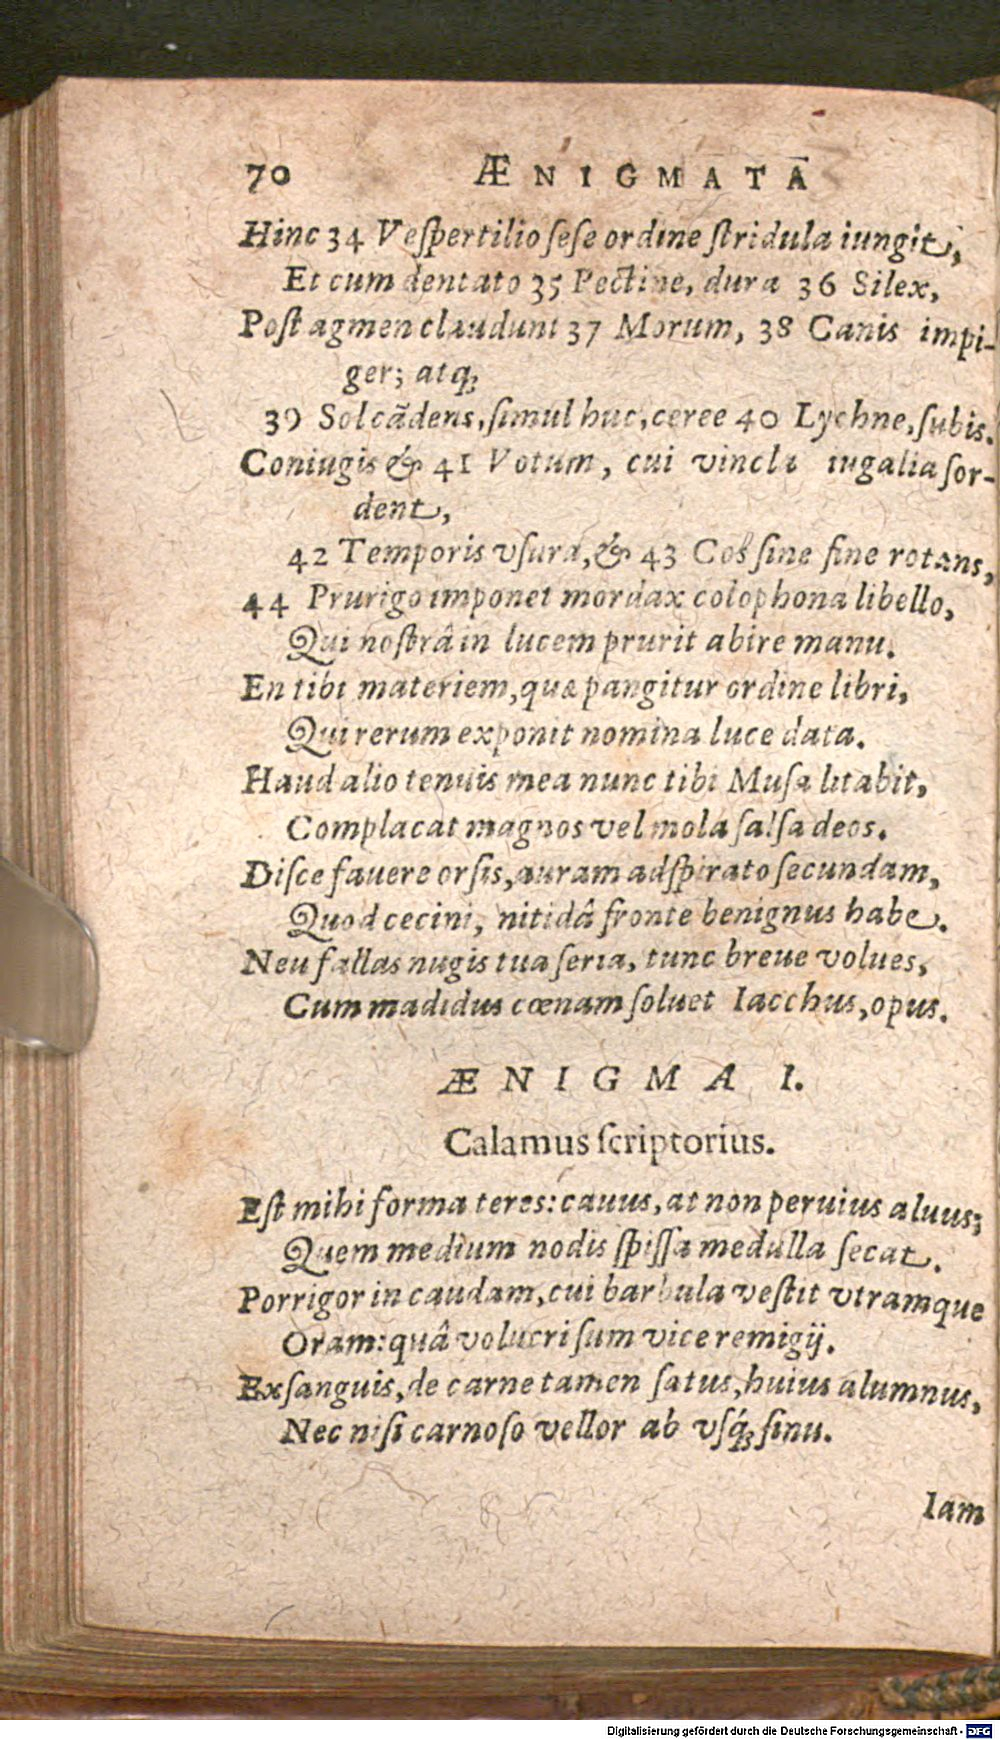 70 ÆNIGMATA
Hinc 34 Veſpertilio ſeſe ordine ſtridula iungit,
Et cum dentato 35 Pectine, dura 36 Silex,
Poſt agmen claudunt 37 Morum, 38 Canis impi-
ger; atq;
39 Sol cãdens, ſimul huc, ceree 40 Lychne, ſubis.
Coniugis & 41 Votum, cui vincla iugalia ſor-
dent,
42 Temporis vſura, & 43 Cos ſine fine rotans,
44 Prurigo imponet mordax colophona libello,
Qui noſtrâ in lucem prurit abire manu.
En tibi materiem, quæ pangitur ordine libri,
Qui rerum exponit nomina luce data.
Haud alio tenuis mea nunc tibi Muſa litabit,
Complacat magnos vel mola ſalſa deos.
Diſce fauere orſis, auram adſpirato ſecundam,
Quod cecini, nitidâ fronte benignus habe.
Neu fallas nugis tua ſeria, tunc breue volues,
Cum madidus cœnam ſoluet Iacchus, opus.
ÆNIGMA I.
Calamus ſcriptorius.
Eſt mihi forma teres: cauus, at non peruius aluus;
Quem medium nodis ſpiſſa medulla ſecat.
Porrigor in caudam, cui barbula veſtit vtramque
Oram: quâ volucri ſum vice remigij.
Exſanguis, de carne tamen ſatus, huius alumnus,
Nec niſi carnoſo vellor ab vſq́; ſinu.
Iam
Digitalisierung gefördert durch die Deutsche Forschungsgemeinschaft - DFG